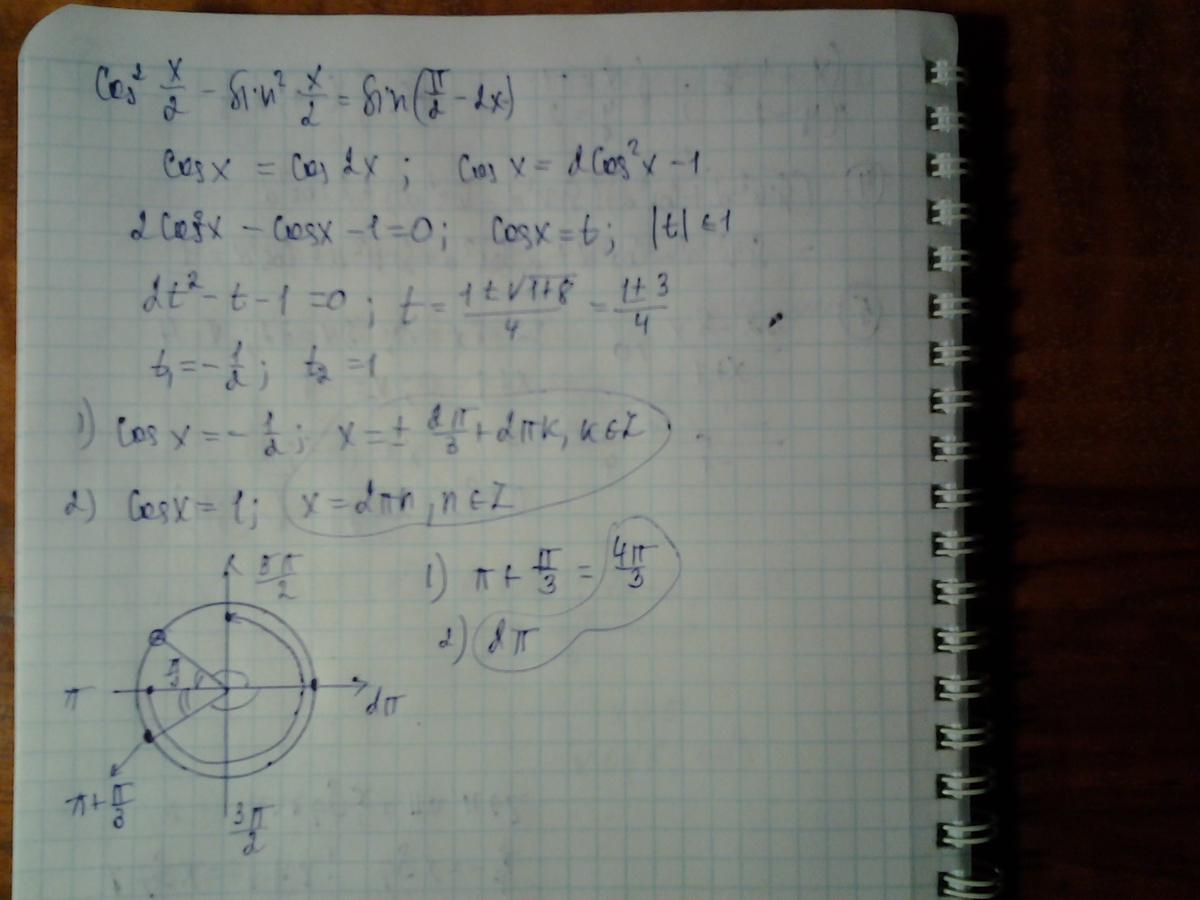 Cos² x/2 - Sin² x/2 = Sin(π/2 - 2x)
Cos x = Cos 2x ; Cos x = 2Cos²x - 1
2Cos²x - Cosx - 1 = 0 ; Cosx = t ; |t| ≤ 1
2t² - t - 1 = 0 ; t = (1 ± √(1+8))/4 = (1 ± 3)/4
t₁ = -1/2 ; t₂ = 1
1) Cos x = -1/2 ; x = ± 2π/3 + 2πk, k ∈ Z
2) Cosx = 1 ; x = 2πn, n ∈ Z
5π/2
1) π + π/3 = 4π/3
2) 2π
π/3
π
2π
π + π/3
3π/2